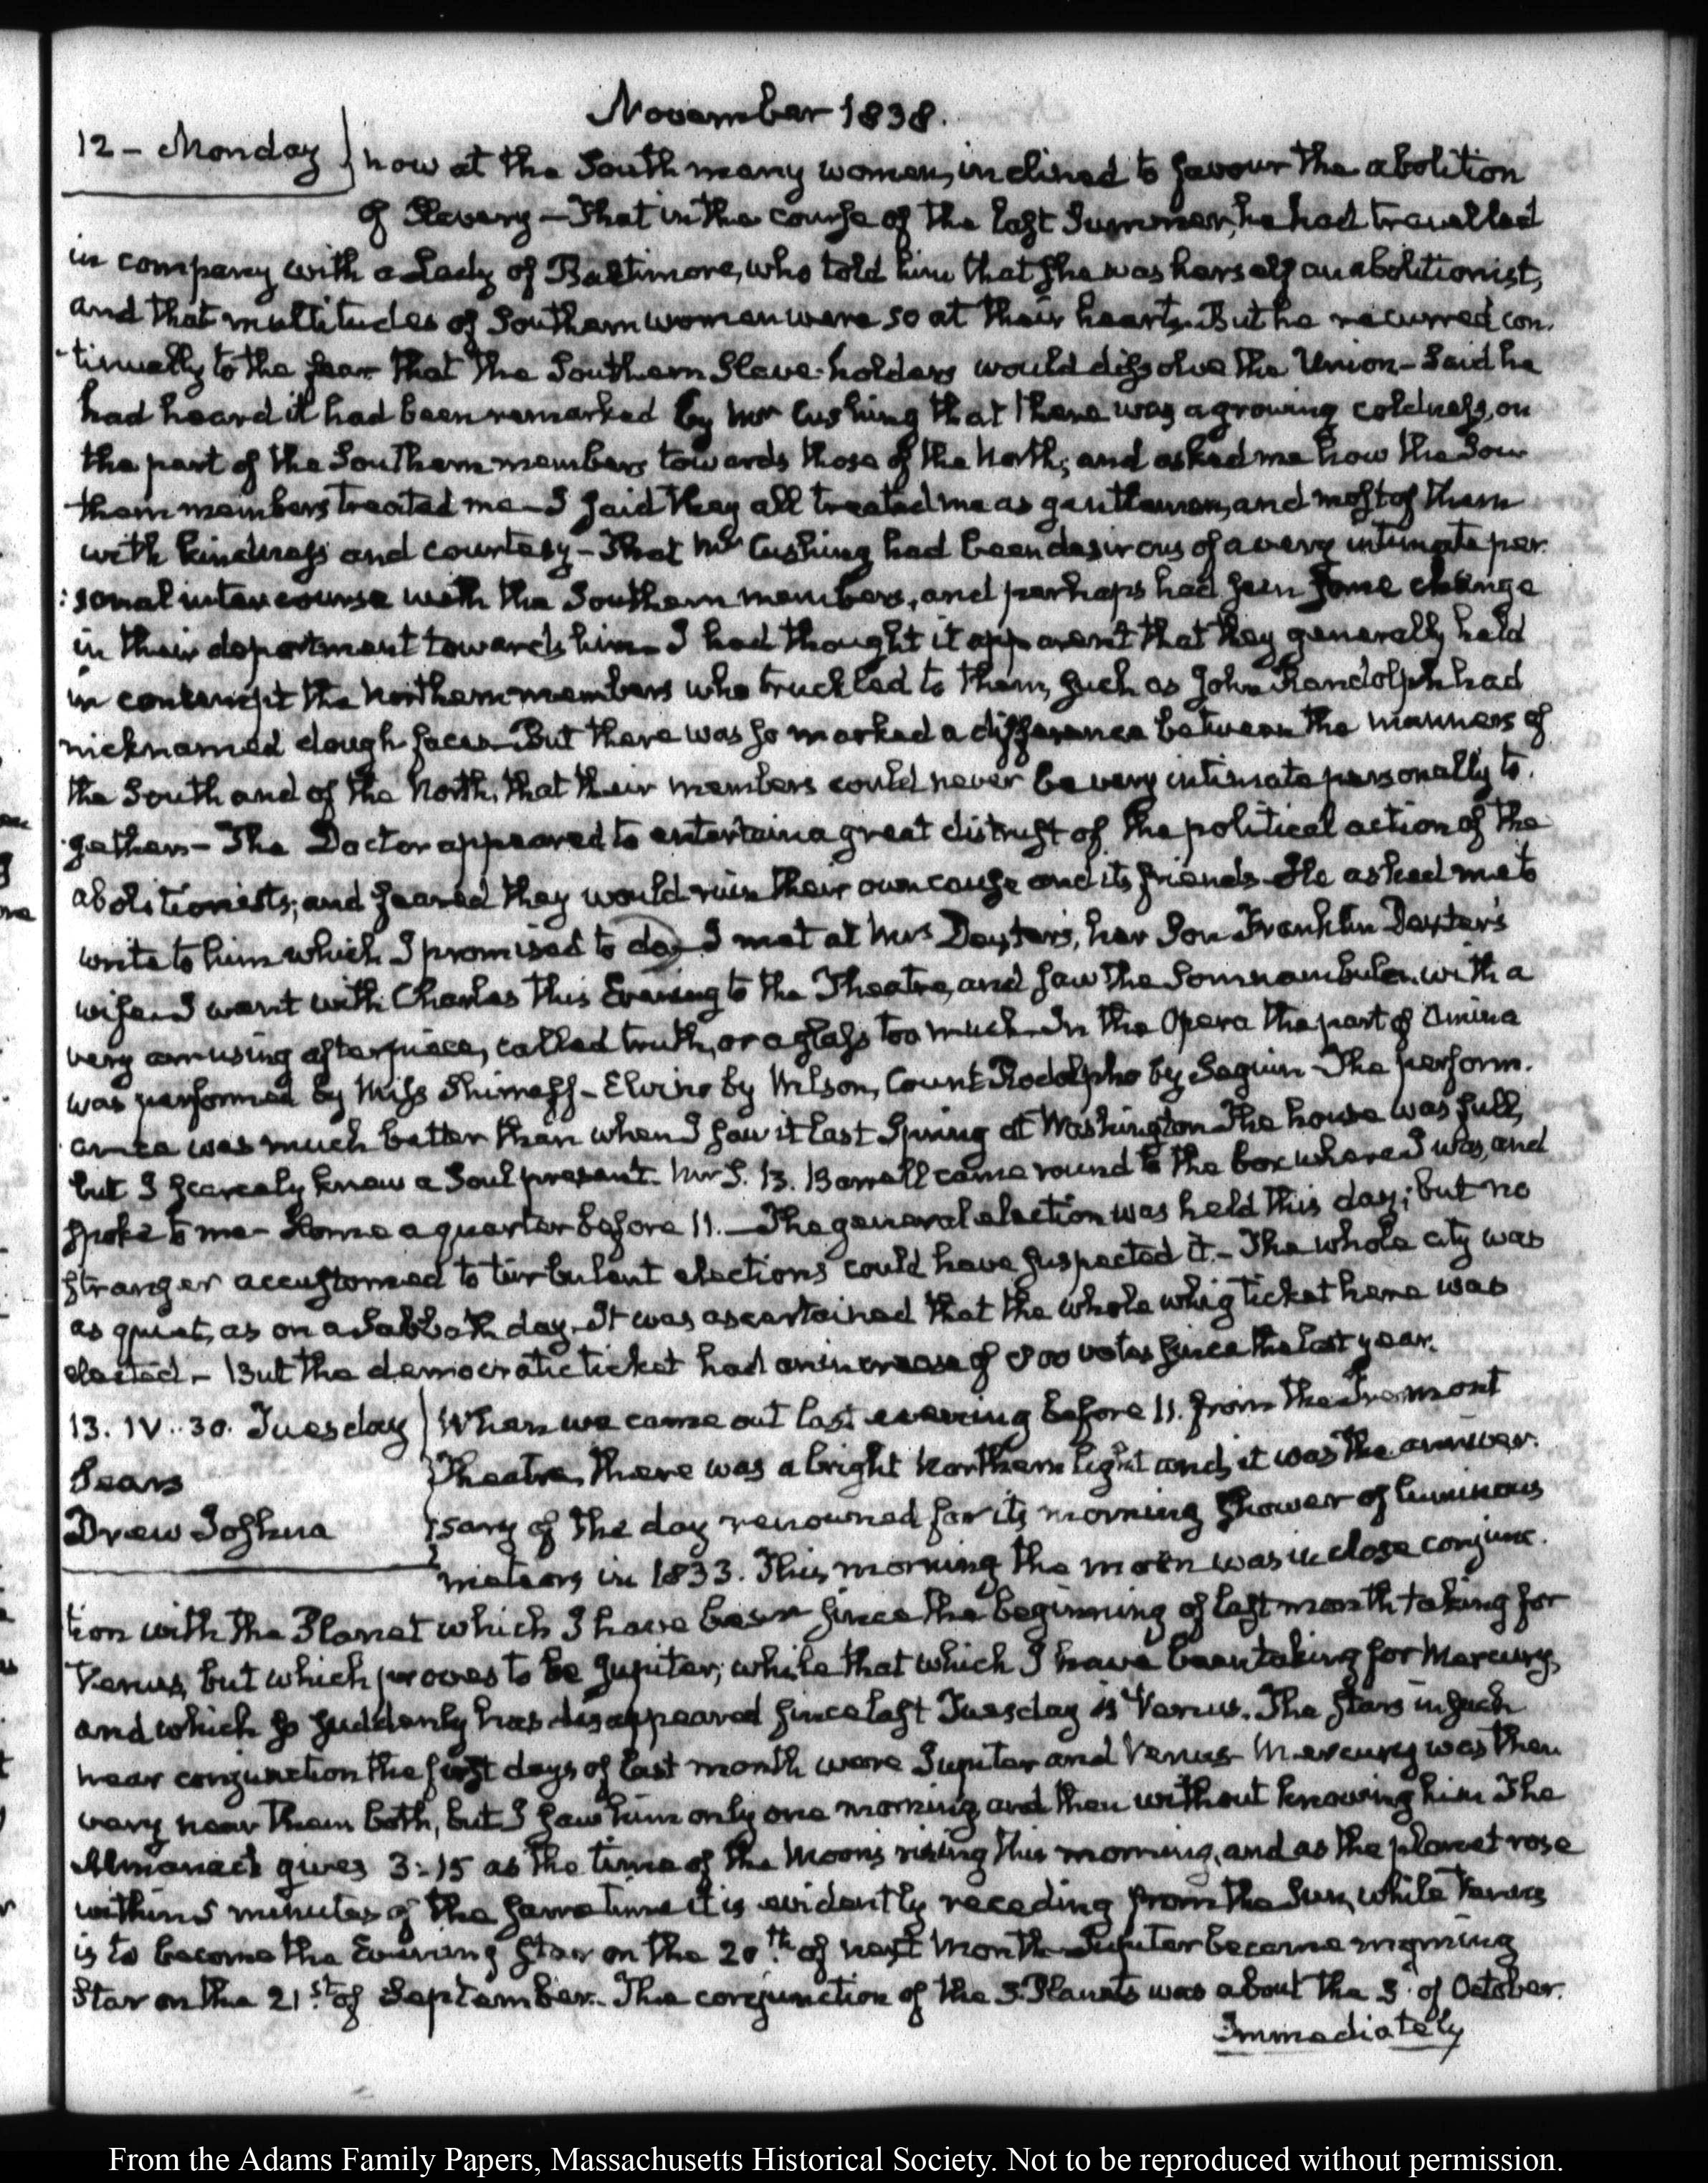 November 1838.
12 - Monday
now at the South many women, inclined to favour the abolition
of Slavery - That in the course of the last Summer, he had travelled
in company with a Lady of Baltimore, who told him that she was herself an abolitionist,
and that multitudes of Southern women were so at their hearts. But he recurred con-
tinually to the fear that the Southern Slave-holders would dissolve the Union - Said he
had heard it had been remarked by Mr Cushing that there was a growing coldness, on
the part of the Southern members towards those of the North; and asked me how the Sou-
thern members treated me - I said they all treated me as gentlemen, and most of them
with kindness and courtesy - That Mr Cushing had been desirous of a very intimate per-
:sonal intercourse with the Southern members, and perhaps had seen some change
in their deportment towards him - I had thought it apparent that they generally held
in contempt the Northern members who truckled to them, such as John Randolph had
nicknamed dough faces - But there was so marked a difference between the manners of
the South and of the North, that their members could never be very intimate personally to-
gether - The Doctor appeared to entertain a great distrust of the political action of the
abolitionists; and feared they would ruin their own cause and its friends - He asked me to
write to him which I promised to do - I met at Mrs Dexter's, her Son Franklin Dexter's
wife - I went with Charles this Evening to the Theatre, and saw the Somnambula. with a
very amusing afterpiece, called truth, or a glass too much - In the Opera the part of Amina
was performed by Miss Shirreff - Elvino by Wilson, Count Rodolpho by Seguin - The perform-
ance was much better than when I saw it last Spring at Washington - The house was full,
but I scarcely knew a Soul present. Mr S. B. Barrell came round to the box where I was, and
spoke to me - Home a quarter before 11. - The general election was held this day; but no
stranger accustomed to turbulent elections could have suspected it. - The whole city was
as quiet, as on a Sabbath day - It was ascertained that the whole whig ticket here was
elected. - But the democratic ticket had an increase of 800 votes since the last year.
13. IV..30. Tuesday
Sears
Drew Joshua
When we came out last evening before 11. from the Tremont
Theatre, there was a bright Northern light and, it was the anniver-
sary of the day renowned for its morning shower of luminous
meteors in 1833. This morning the moon was in close conjunc-
tion with the Planet which I have been since the beginning of last month taking for
Venus, but which proves to be Jupiter; while that which I have been taking for Mercury,
and which so suddenly has disappeared since last Tuesday is Venus. The stars in such
near conjunction the first days of last month were Jupiter and Venus - Mercury was then
very near them both, but I saw him only one morning, and then without knowing him The
Almanack gives 3:15 as the time of the Moon's rising this morning, and as the planet rose
within 5 minutes of the same time it is evidently receding from the Sun, while Venus
is to become the Evening Star on the 20th. of next Month - Jupiter became morning
Star on the 21st. of September. The conjunction of the 3 Planets was about the 3. of October.
Immediately
From the Adams Family Papers, Massachusetts Historical Society. Not to be reproduced without permission.